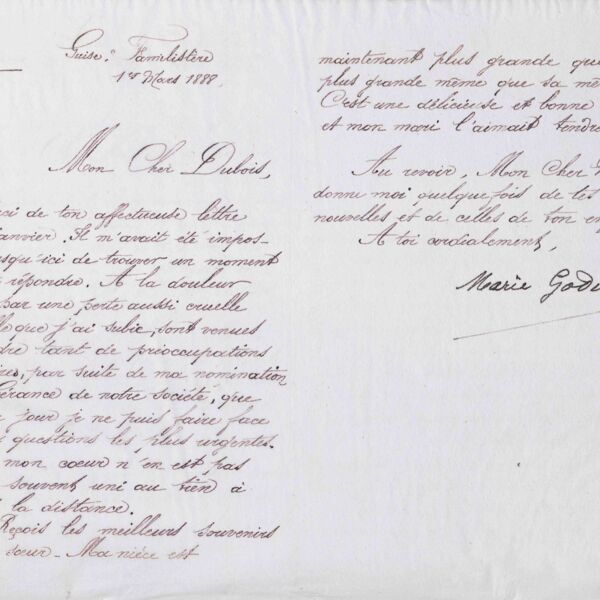 Guise. Familistère
1er Mars 1888.
Mon Cher Dubois,
ci de ton affectueuse lettre
anvier. Il m'avait été impos-
squ'ici de trouver un moment
répondre. A la douleur
par une perte aussi cruelle
lle que j'ai subie, sont venues
dre tant de préoccupations
ires, par suite de ma nomination
Gérance de notre société, que
jour je ne puis faire face
questions les plus urgentes.
mon coeur n'en est pas
souvent uni au tien à
la distance.
Reçois les meilleurs souvenirs
soeur. Ma nièce est
maintenant plus grande que
plus grande même que sa mè
C'est une délicieuse et bonne
et mon mari l'aimait tendre
Au revoir, Mon Cher
donne moi quelquefois de tes
nouvelles et de celles de ton en
A toi cordialement,
Marie Godi